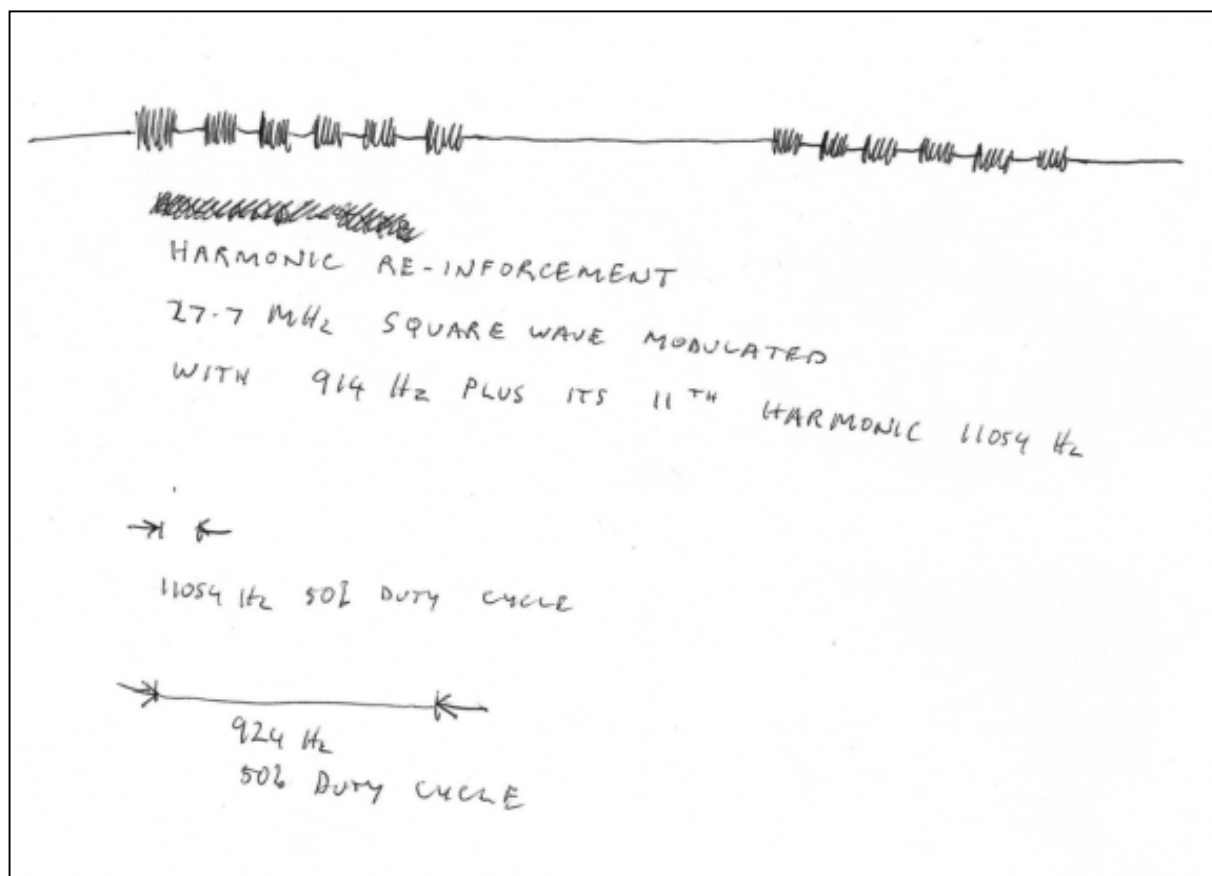 HARMONIC RE-INFORCEMENT
27.7 MHz SQUARE WAVE MODULATED
WITH 914 Hz PLUS ITS 11TH HARMONIC 11054 Hz
11054 Hz 50% DUTY CYCLE
924 Hz
50% DUTY CYCLE